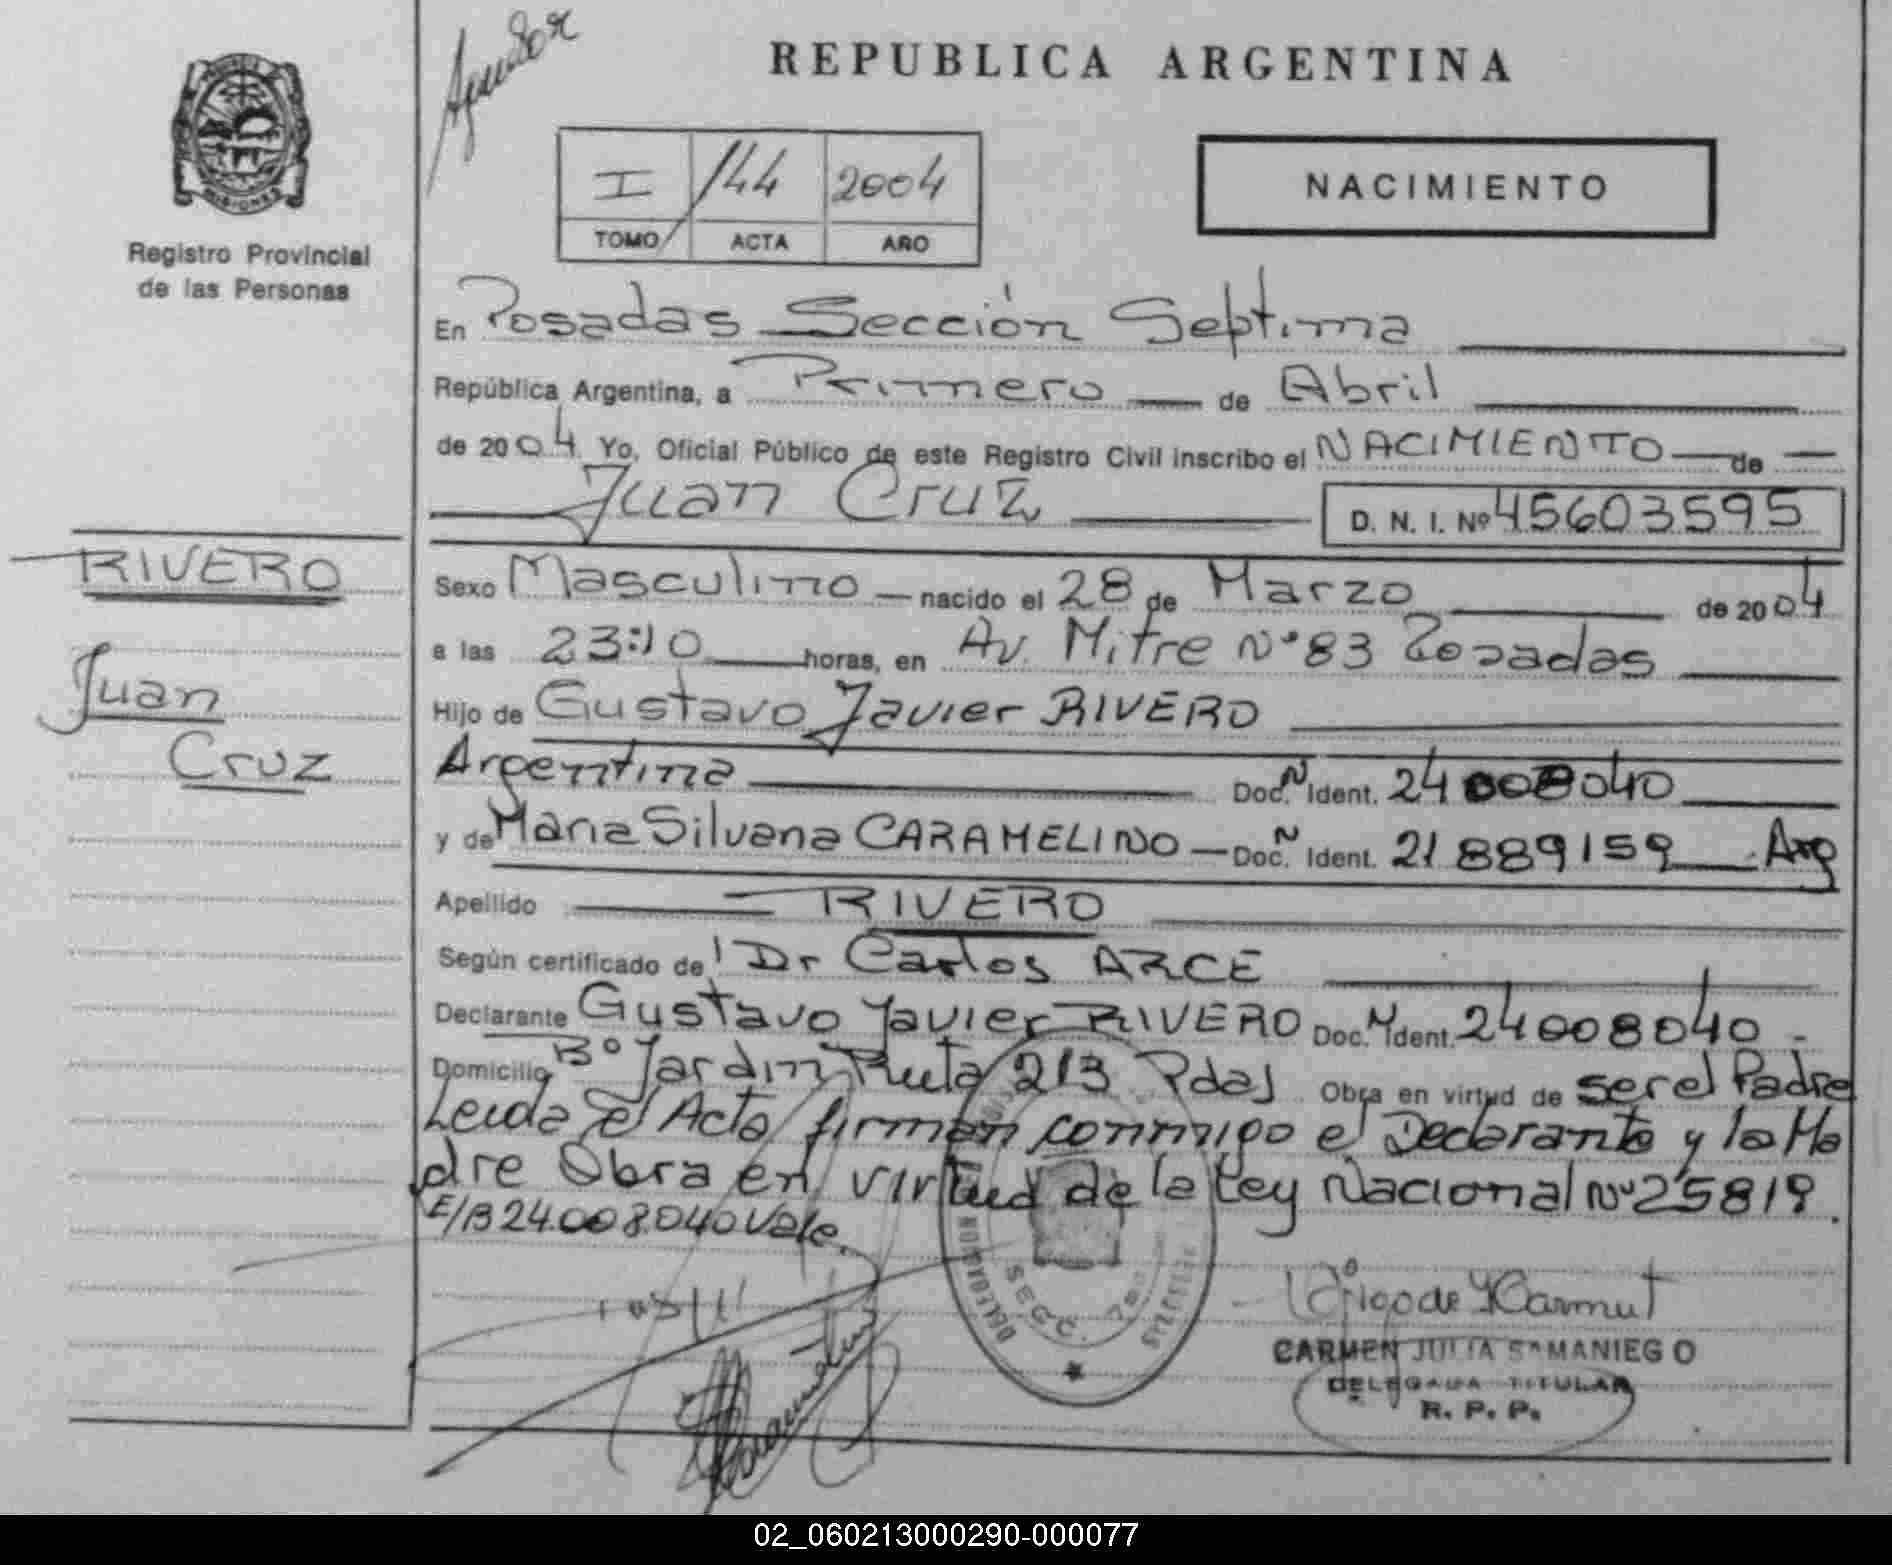 REPUBLICA ARGENTINA
MISIONES
Registro Provincial
de las Personas
I 144 2004
TOMO ACTA AÑO
NACIMIENTO
En Posadas Sección Septima
República Argentina, a Primero de Abril
de 2004 Yo, Oficial Público de este Registro Civil inscribo el NACIMIENTO de
Juan Cruz D. N. I. Nº 45603595
RIVERO
Juan
Cruz
Sexo Masculino nacido el 28 de Marzo de 2004
a las 23:10 horas, en Av. Mitre Nº 83 Posadas
Hijo de Gustavo Javier RIVERO
Argentina Doc. N Ident. 24008040
y de Maria Silvana CARAMELINO Doc. N Ident. 21889159 Arg
Apellido RIVERO
Según certificado de Dr Carlos ARCE
Declarante Gustavo Javier RIVERO Doc. N Ident. 24008040
Domicilio Bº Jardin Ruta 213 Pdas Obra en virtud de ser el Padre
Leida el Acta firman conmigo el Declarante y la Ma
dre Obra en virtud de la Ley Nacional Nº 25819.
E/B 24.008.040 Vale.
SECC. 7ma
CARMEN JULIA SAMANIEGO
DELEGADA TITULAR
R. P. P.
02_060213000290-000077